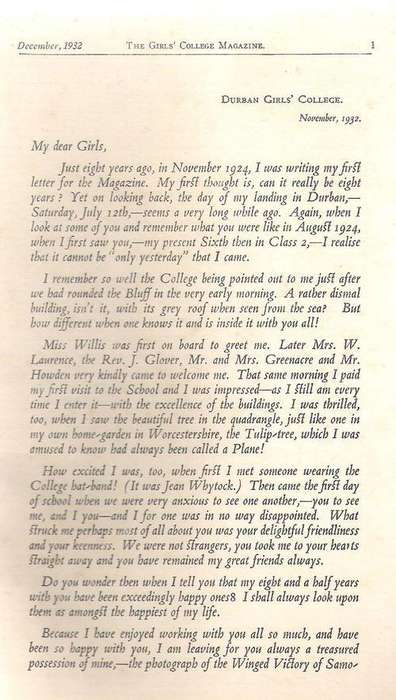 December, 1932 THE GIRLS' COLLEGE MAGAZINE. 1
DURBAN GIRLS' COLLEGE.
November, 1932.
My dear Girls,
Just eight years ago, in November 1924, I was writing my first
letter for the Magazine. My first thought is, can it really be eight
years? Yet on looking back, the day of my landing in Durban,—
Saturday, July 12th,—seems a very long while ago. Again, when I
look at some of you and remember what you were like in August 1924,
when I first saw you,—my present Sixth then in Class 2,—I realise
that it cannot be "only yesterday" that I came.
I remember so well the College being pointed out to me just after
we had rounded the Bluff in the very early morning. A rather dismal
building, isn't it, with its grey roof when seen from the sea? But
how different when one knows it and is inside it with you all!
Miss Willis was first on board to greet me. Later Mrs. W.
Laurence, the Rev. J. Glover, Mr. and Mrs. Greenacre and Mr.
Howden very kindly came to welcome me. That same morning I paid
my first visit to the School and I was impressed—as I still am every
time I enter it—with the excellence of the buildings. I was thrilled,
too, when I saw the beautiful tree in the quadrangle, just like one in
my own home-garden in Worcestershire, the Tulip-tree, which I was
amused to know had always been called a Plane!
How excited I was, too, when first I met someone wearing the
College hat-band! (It was Jean Whytock.) Then came the first day
of school when we were very anxious to see one another,—you to see
me, and I you—and I for one was in no way disappointed. What
struck me perhaps most of all about you was your delightful friendliness
and your keenness. We were not strangers, you took me to your hearts
straight away and you have remained my great friends always.
Do you wonder then when I tell you that my eight and a half years
with you have been exceedingly happy ones8 I shall always look upon
them as amongst the happiest of my life.
Because I have enjoyed working with you all so much, and have
been so happy with you, I am leaving for you always a treasured
possession of mine,—the photograph of the Winged Victory of Samo-